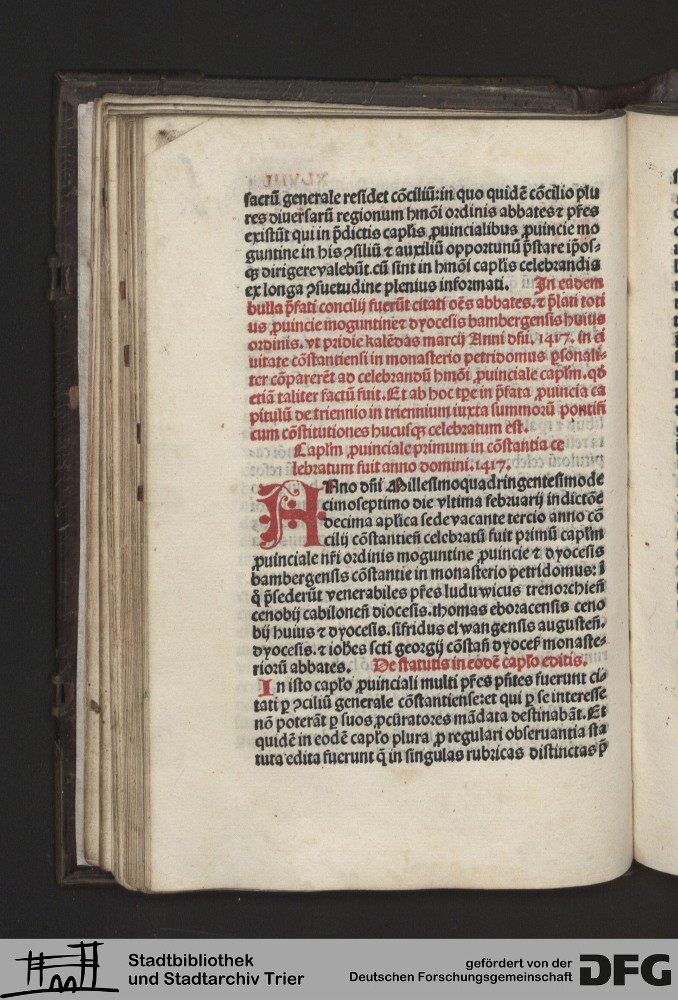 sacrū generale residet cōciliū: in quo quidē cōcilio plu
res diuersarū regionum hmōi ordinis abbates ⁊ p̄res
existūt qui in p̄dictis caplis ꝓuincialibus ꝓuincie mo
guntine in his ꝯsiliū ⁊ auxiliū opportunū p̄stare ip̄os-
qꝫ dirigere valebūt. cū sint in hmōi caplis celebrandis
ex longa ꝯsuetudine plenius informati. In eadem
bulla p̄fati concilij fuerūt citati oēs abbates. ⁊ p̄lati toti
us ꝓuincie moguntine ⁊ dyocesis bambergensis huius
ordinis. vt pridie kalēdas marcij Anni dn̄i. 1417. in ci
uitate cōstantiensi in monasterio petridomus ꝑsonali-
ter cōparerēt ad celebrandū hmōi ꝓuinciale caplm. qđ
etiā taliter factū fuit. Et ab hoc tꝑe in p̄fata ꝓuincia ca
pitulū de triennio in triennium iuxta summorū pontifi
cum cōstitutiones hucusqꝫ celebratum est.
Caplm ꝓuinciale primum in cōstantia ce
lebratum fuit anno domini. 1417.
ANno dn̄i Millesimoquadringentesimode
cimoseptimo die vltima februarij indictōe
decima aplica sede vacante tercio anno cō
cilij cōstantieñ celebratū fuit primū caplm
ꝓuinciale nr̄i ordinis moguntine ꝓuincie ⁊ dyocesis
bambergensis cōstantie in monasterio petridomus: ī
q̊ p̄sederūt venerabiles p̄res luduwicus trenorchieñ
cenobij cabiloneñ diocesis. thomas eboracensis ceno
bij huius ⁊ dyocesis. sifridus elwangensis augusteñ.
dyocesis. ⁊ ioh̄es sc̄ti georgij cōstañ dyoceẜ monaste-
riorū abbates. De statutis in eodē caplo editis.
In isto caplo ꝓuinciali multi p̄res p̄ntes fuerunt ci-
tati ꝑ ꝯciliū generale cōstantiense: et qui ꝑ se interesse
nō poterāt ꝑ suos ꝓcūratores mādata destinabāt. Et
quidē in eodē caplo plura ꝓ regulari obseruantia sta
tuta edita fuerunt q̄ in singulas rubricas distinctas p̄
Stadtbibliothek
und Stadtarchiv Trier
gefördert von der
Deutschen Forschungsgemeinschaft
DFG